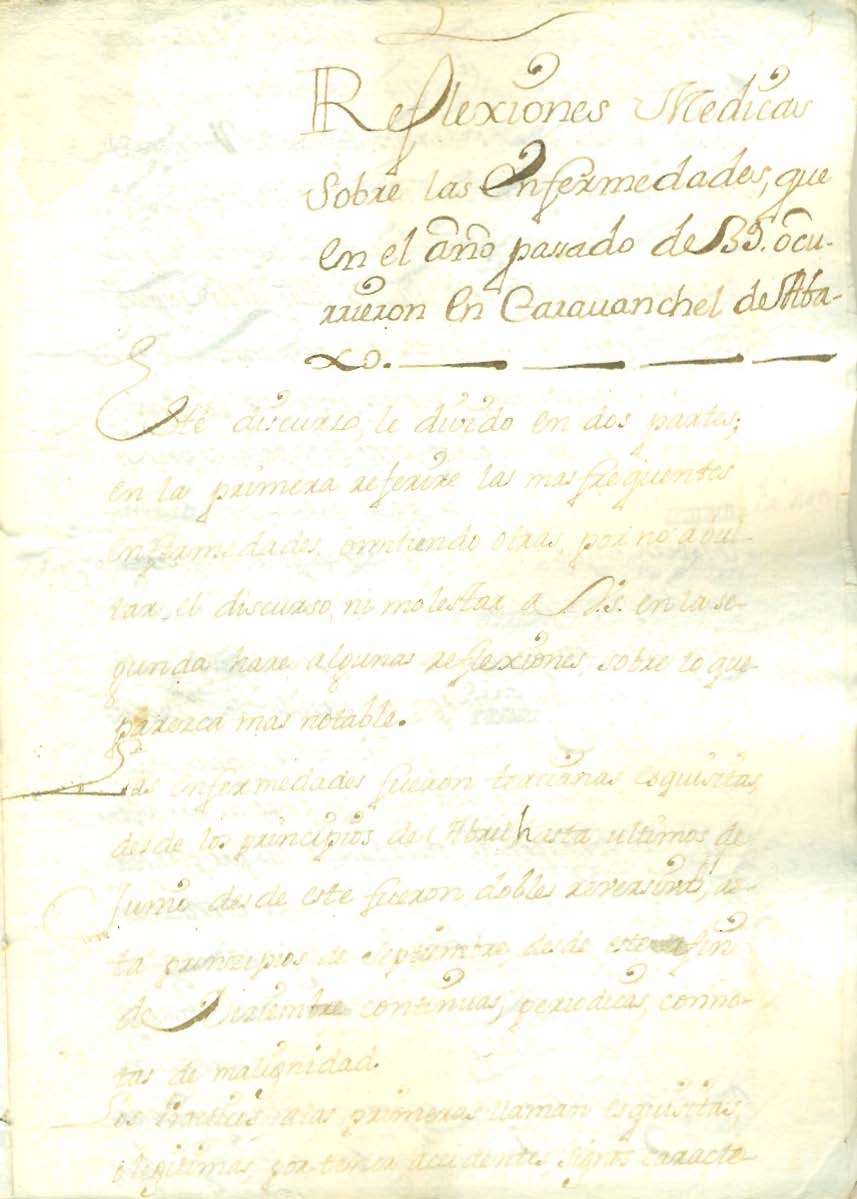 1
Reflexiones Medicas
Sobre las Enfermedades, que
en el año pasado de 39. ocu-
rrieron En Carauanchel de Aba-
xo.
Este discurso, le divido en dos partes;
en la primera referire las mas frequentes
enfermedades, omitiendo otras, por no abul-
tar, el discurso, ni molestar a V.S. en la se-
gunda hare algunas reflexiones, sobre lo que
parezca mas notable.
Las enfermedades fueron tercianas esquisitas,
desde los principios de Abril hasta ultimos de
Junio desde este fueron dobles as-
ta prinzipios de Septiembre, desde este a fin
de Diziembre continuas, periodicas, con no-
tas de malignidad.
Los Practicos a las primeras llaman esquisitas,
o legitimas, por tener accidentes, signos caracte-